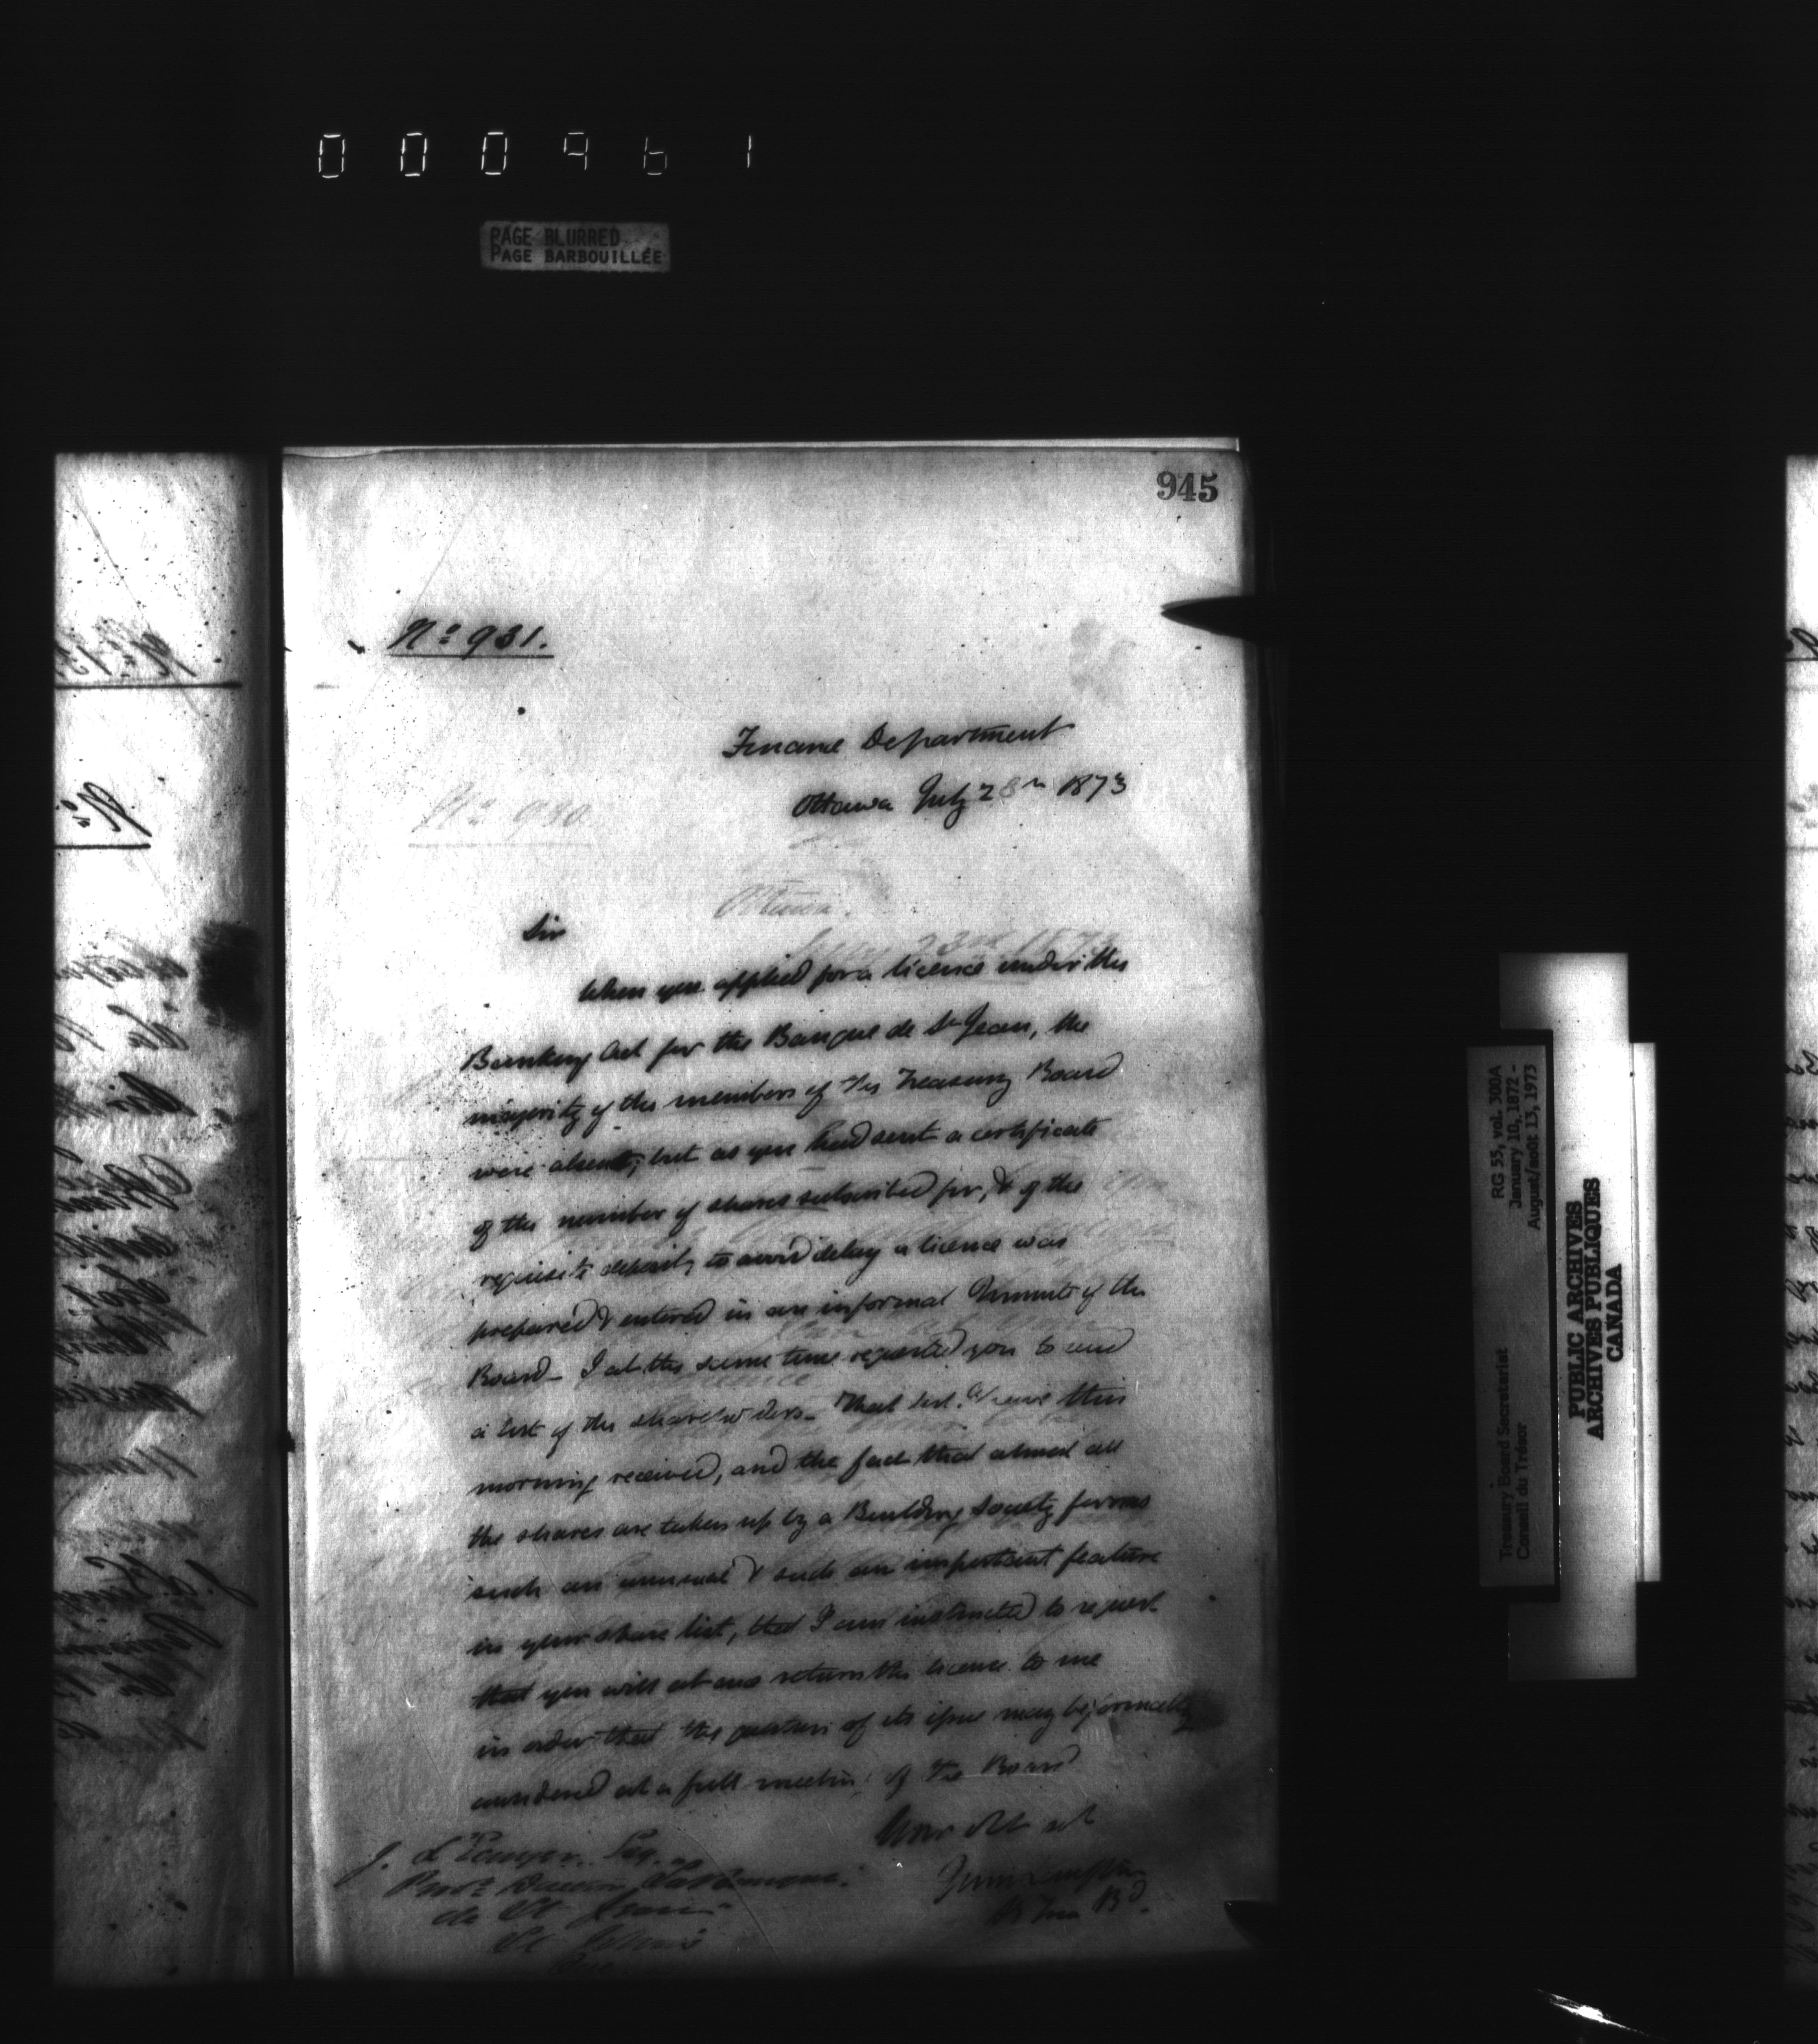 000961
PAGE BLURRED
PAGE BARBOUILLÉE
945
No 931.
Finance Department
Ottawa July 28th 1873
No 930
Ottawa.
July 23rd 1873
Sir
When you applied for a licence under the
Banking Act for the Banque de St Jean, the
majority of the members of the Treasury Board
were absent; but as you had sent a certificate
of the number of shares subscribed for, & of the
requisite deposit, to avoid delay a licence was
prepared & entered in an informal Minute of the
Board - I at the same time requested you to send
a list of the shareholders - That list was this
morning received, and the fact that almost all
the shares are taken up by a Building Society forms
such an unusual & such an important feature
in your share list, that I am instructed to request
that you will at once return the licence to me
in order that the question of its issue may be formally
considered at a full meeting of the Board
J. Esq.
de St Jean
St John's
Que
RG 55, vol. 300A
January 10, 1872 -
August/août 13, 1973
Treasury Board Secretariat
Conseil du Trésor
PUBLIC ARCHIVES
ARCHIVES PUBLIQUES
CANADA